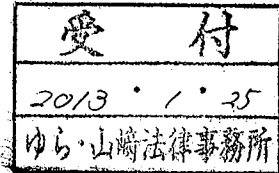 受付
2013・1・25
ゆら・山崎法律事務所